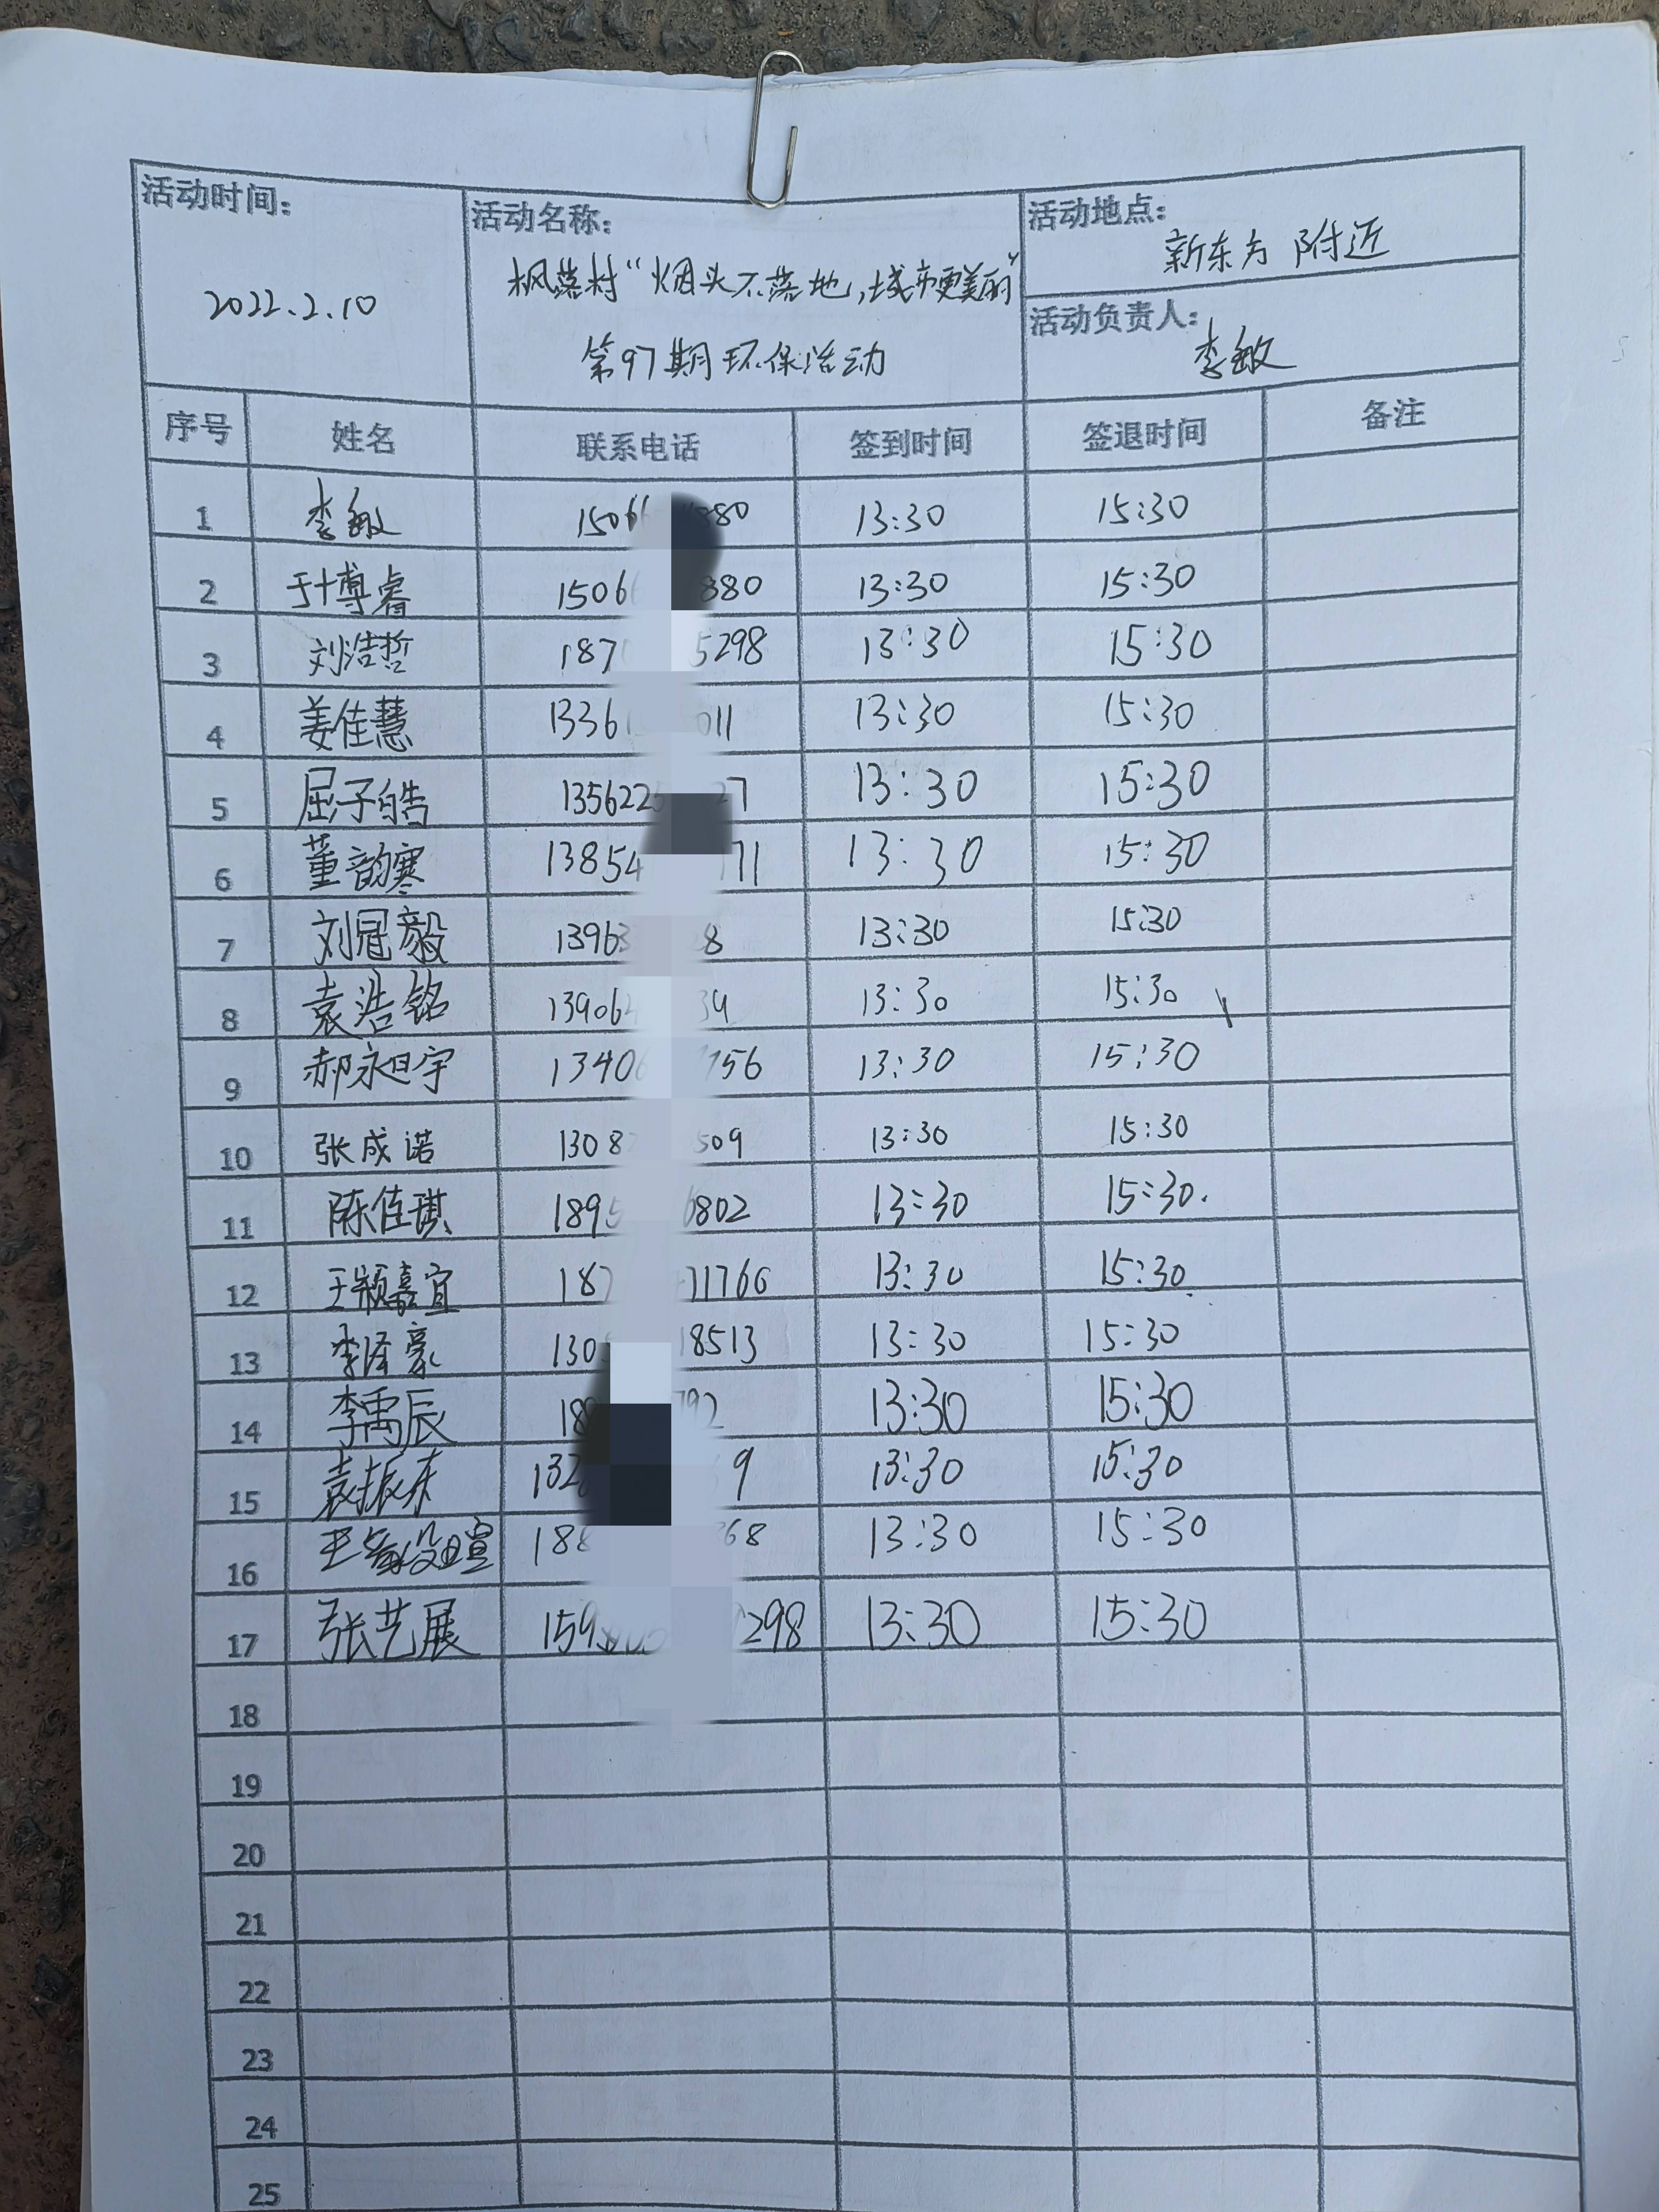 活动时间: 活动名称: 活动地点:
新东方 附近
2022.2.10 枫落村“烟头不落地,城市更美丽”
第97期环保活动
活动负责人:
李敏
序号 姓名 联系电话 签到时间 签退时间 备注
1 李敏 1506 880 13:30 15:30
2 于博睿 1506 880 13:30 15:30
3 刘浩哲 187 5298 13:30 15:30
4 姜佳慧 1336 011 13:30 15:30
5 屈子皓 135622 27 13:30 15:30
6 董韵寒 13854 71 13:30 15:30
7 刘冠毅 1396 8 13:30 15:30
8 袁浩铭 1390 39 13:30 15:30
9 郝永昱宇 1340 756 13:30 15:30
10 张成诺 1308 509 13:30 15:30
11 陈佳琪 189 6802 13:30 15:30.
12 王颖嘉宜 187 11766 13:30 15:30
13 李泽豪 130 18513 13:30 15:30
14 李禹辰 18 792 13:30 15:30
15 袁振东 132 9 13:30 15:30
16 188 68 13:30 15:30
17 张艺展 159 298 13:30 15:30
18
19
20
21
22
23
24
25